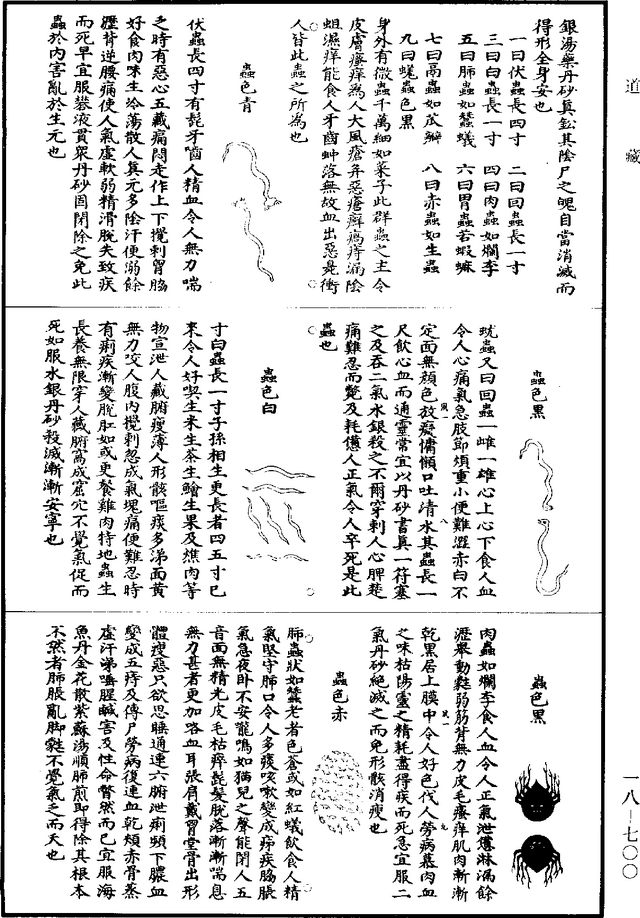 道藏
一八—七〇〇
銀湯藥丹砂真鈆其陰尸之魄自當消滅而
得形全身安也
一曰伏蟲長四寸 二曰回蟲長一寸
三曰白蟲長一寸 四曰肉蟲如爛李
五曰肺蟲如蠶蟻 六曰胃蟲若蝦蟆
七曰鬲蟲如苽瓣 八曰赤蟲如生蟲
九曰蜣蟲色黑
身外有微蟲千萬細如菜子此群蟲之主令
皮膚瘙痒為人大風瘡并惡瘡癬瘑痔漏陰
蛆濕痒能食人牙齒蚛落無故血出惡是衝
人皆此蟲之所為也
蟲色青
伏蟲長四寸有髭牙嚙人精血令人無力喘
乏時有惡心五藏痛悶走作上下攪刺胷脇
好食肉味生冷蕩散人真元多陰汗便溺餘
瀝背逆腰痛使人氣虛軟弱精滑脫失致疾
而死早宜服礬液貫眾丹砂固閉除之免此
蟲於內害亂於生元也
蟲色黑
蚘蟲又曰回蟲一雌一雄心上心下食人血
令人心痛氣急肢節煩重小便難澀赤白不
定面無顏色放癡慵懶口吐清水其蟲長一
尺飲心血而通靈常宜以丹砂書真一符塞
之及吞二氣水銀殺之不爾穿刺人心脾楚
痛難忍而斃及耗儓人正氣令人卒死是此
蟲也
蟲色白
寸白蟲長一寸子孫相生更長者四五寸已
來令人好喫生米生茶生鱠生果及燋肉等
物宣泄人藏腑瘦薄人形骸嘔痰多涕面黃
無力咬人腹內攪刺忽成氣塊痛便難忍時
有痢疾漸變脫肛如或更餐雞肉持地蟲生
長養無限穿人藏腑窩成窟穴不覺氣促而
死如服水銀丹砂殺滅漸漸安寧也
蟲色黑
肉蟲如爛李食人血令人正氣泄憊淋漏餘
瀝舉動甤弱筋背無力皮毛瘙痒肌肉漸漸
乾黑居上膜中令人好色伐人勞病慕肉血
之味枯陽靈之精耗盡得疾而死急宜服二
氣丹砂絕滅之而免形骸消瘦也
蟲色赤
肺蟲狀如蠶老者色蒼或如紅蟻飲食人精
氣堅守肺口令人多痰咳嗽變成痨疾脇脹
氣急夜卧不安竉鳴如猫兒之聲能閉人五
音面無精光皮毛枯瘁髭髮脫落漸漸喘息
無力甚者更加咯血耳張肩戴胷堂骨出形
體瘦惡只欲思睡通連六腑泄痢頻下膿血
變成五痔及傳尸勞病復連血乾頰赤骨蒸
虛汗涕唾腥鹹害及性命瞥然而已宜服海
魚丹金花散紫蘇湯順肺煎即得除其根本
不然者肺脹亂脚甤不覺氣乏而夭也